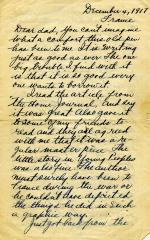 December 9, 1917
France
Dear dad, You can't imagine
what a comfort this old pen
has been to me. It is writing
just as good as ever. The one
big trouble I find with it
is that it is so good every
one wants to borrow it.
Read the article from
the Home Journal. And say
it was great. Also gave it
to some my friends to
read and they all agreed
with me that it was a re-
gular master piece. The
little story in Young Peoples
was also fine. The author
must surely have been to
France during the war or
he couldn't have depicted
the things he did in such
a graphic way.
Just got back from the